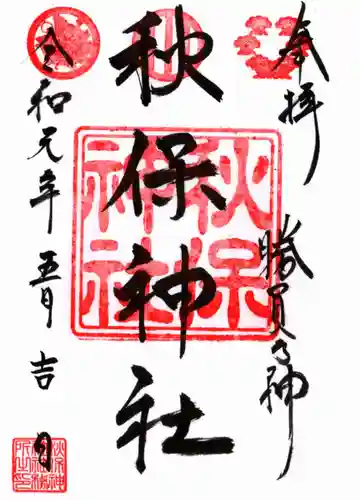 奉拝 勝負乃神
秋保神社
秋保神社
令和元年五月吉日